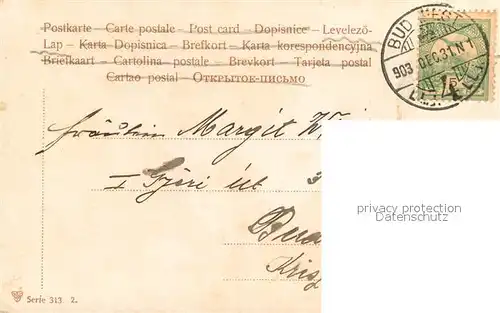 Postkarte - Carte postale - Post card - Dopisnice - Levelező-
Lap - Karta Dopisnica - Brefkort - Karta korespondencyjna
Briefkaart - Cartolina postale - Brevkort - Tarjeta postal
Cartao postal - Открытое-письмо
BUDAPEST
903 DEC. 31. N 1
Fräulein Margit
I Györi út
privacy protection
Datenschutz
Serie 313 2.